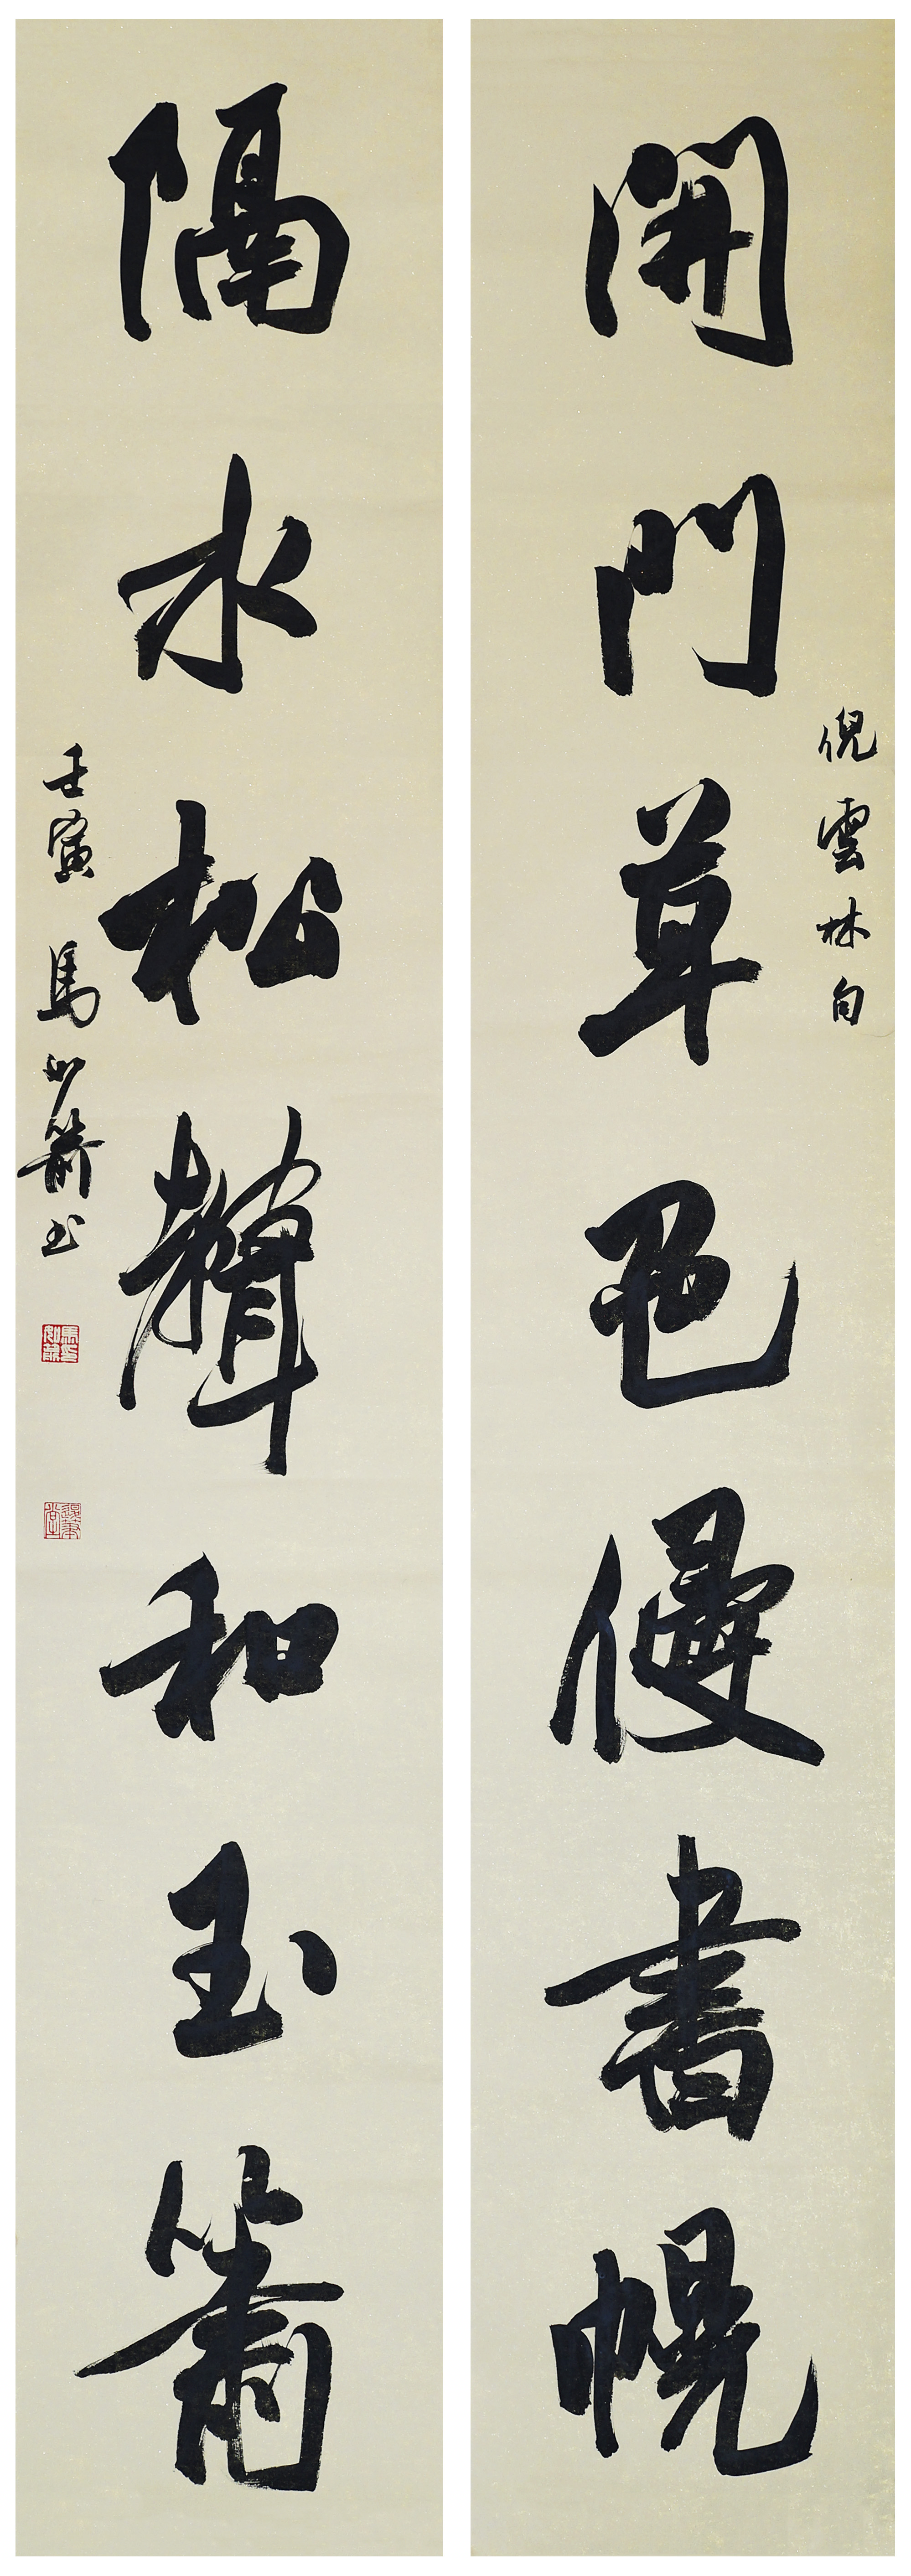 開門草色侵書幌
倪雲林句
隔水松聲和玉簫
壬寅 馬如箭书